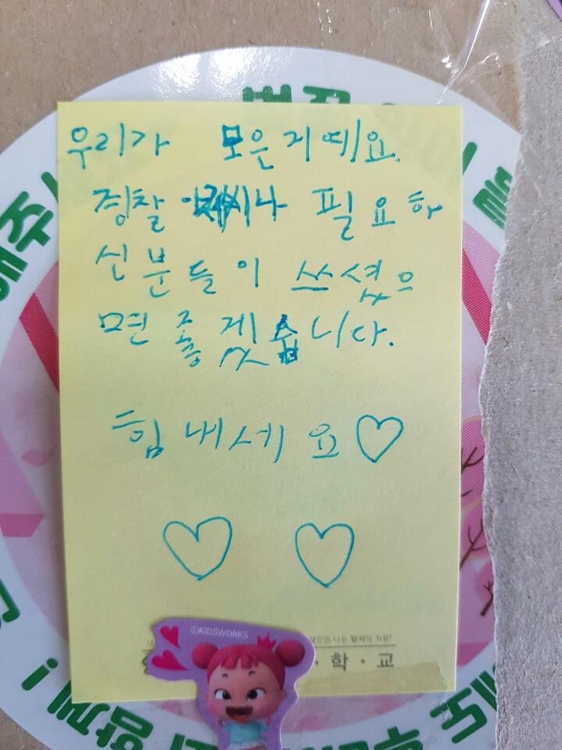 우리가 모은거예요.
경찰 아저씨나 필요하
신분들이 쓰셨으
면 좋겠습니다.
힘내세요♡
♡ ♡
©KIDSWORKS
·학·교
함께!